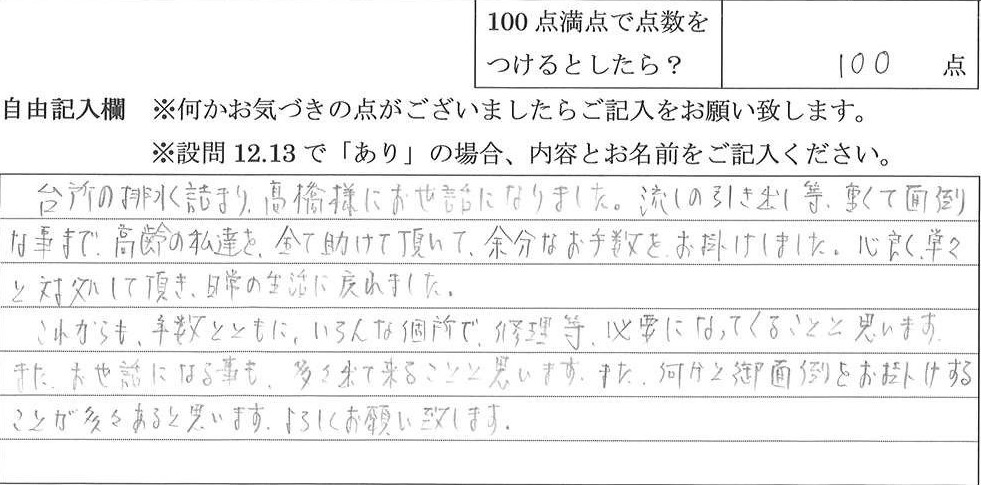 100 点満点で点数を
つけるとしたら？
100 点
自由記入欄 ※何かお気づきの点がございましたらご記入をお願い致します。
※設問 12.13 で「あり」の場合、内容とお名前をご記入ください。
台所の排水詰まり、高橋様にお世話になりました。流しの引き出し等、重くて面倒
な事まで、高齢の私達を、全て助けて頂いて、余分なお手数をお掛けしました。心良く、早々
と対処して頂き、日常の生活に戻れました。
これからも、年数とともに、いろんな個所で、修理等、必要になってくることと思います。
また、お世話になる事も、多々出て来ることと思います。また、何分と御面倒をお掛けする
ことが多々あると思います。よろしくお願い致します。